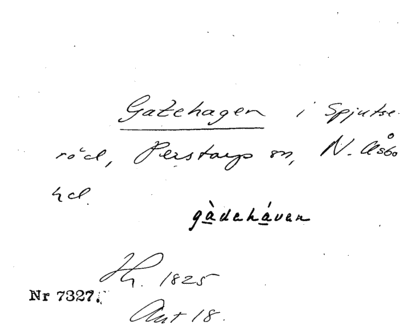 Gatehagen i Spjutse-
röd, Perstorps sn, N. Åsbo
hd.
gàdehávan
H. 1825
Nr 7327.
Ant 18.